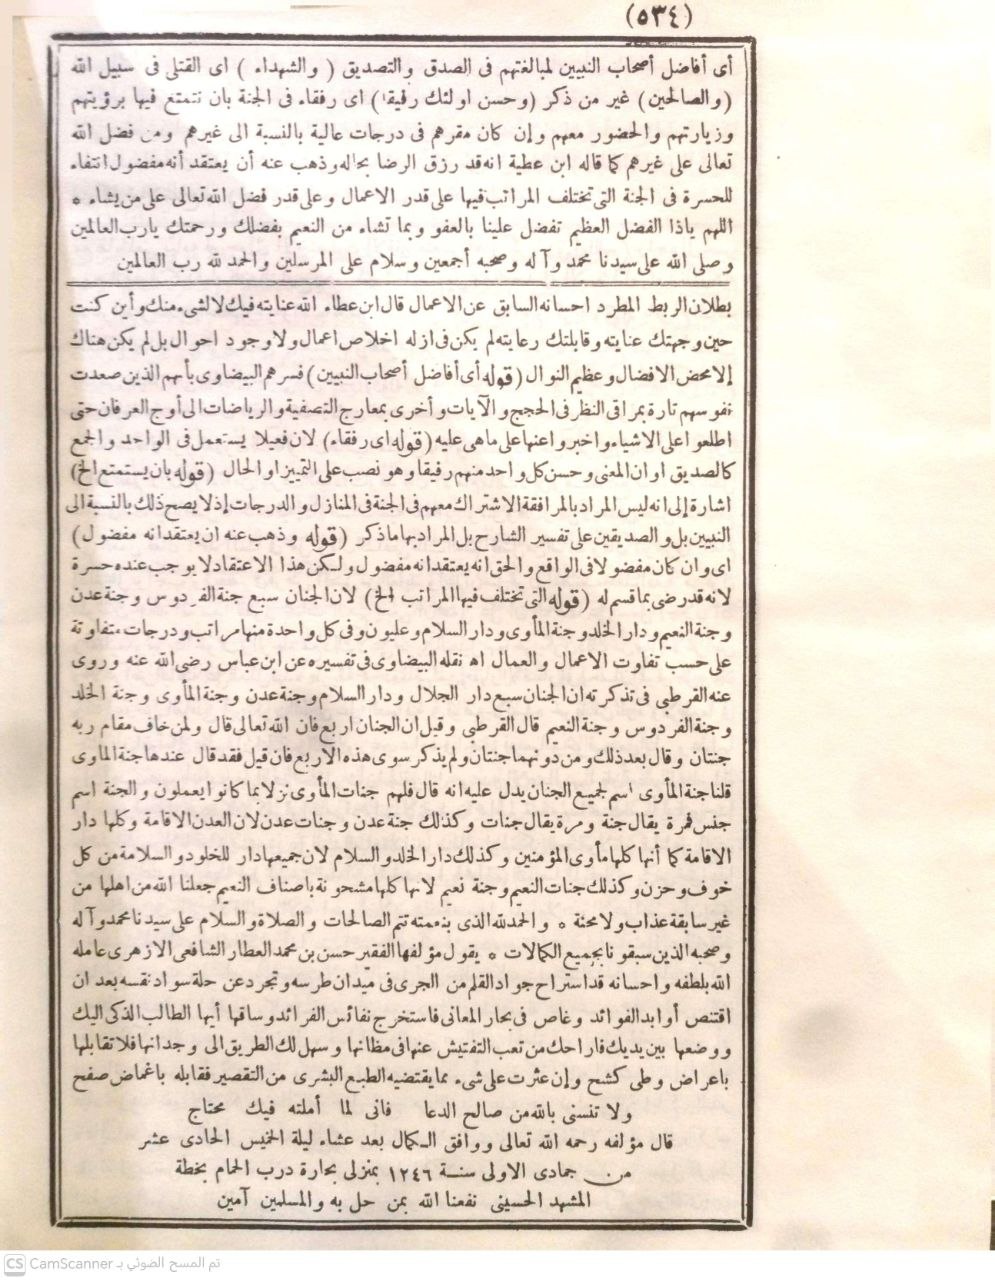 (٥٣٤)
أى أفاضل أصحاب النبيين لمبالغتهم فى الصدق والتصديق ( والشهداء ) اى القتلى فى سبيل الله
(والصالحين) غير من ذكر (وحسن اولئك رفيقا) اى رفقاء فى الجنة بان نتمتع فيها برؤيتهم
وزيارتهم والحضور معهم وإن كان مقرهم فى درجات عالية بالنسبة الى غيرهم ومن فضل الله
تعالى على غيرهم كما قاله ابن عطية انه قد رزق الرضا بحاله وذهب عنه أن يعتقد أنه مفضول انتفاء
للحسرة فى الجنة التى تختلف المراتب فيها على قدر الاعمال وعلى قدر فضل الله تعالى على من يشاء *
اللهم ياذا الفضل العظيم تفضل علينا بالعفو وبما تشاء من النعيم بفضلك ورحمتك يارب العالمين
وصلى الله على سيدنا محمد وآله وصحبه أجمعين وسلام على المرسلين والحمد لله رب العالمين
بطلان الربط المطرد احسانه السابق عن الاعمال قال ابن عطاء الله عنايته فيك لا لشىء منك وأين كنت
حين وجهتك عنايته وقابلتك رعايته لم يكن فى ازله اخلاص اعمال ولا وجود احوال بل لم يكن هناك
إلا محض الافضال وعظيم النوال (قوله أى أفاضل أصحاب النبيين) فسرهم البيضاوى بأنهم الذين صعدت
نفوسهم تارة بمراقى النظر فى الحجج والآيات وأخرى بمعارج التصفية والرياضات الى أوج العرفان حتى
اطلعوا على الاشياء واخبروا عنها على ماهى عليه (قوله اى رفقاء) لان فعيلا يستعمل فى الواحد والجمع
كالصديق او ان المعنى وحسن كل واحد منهم رفيقا وهو نصب على التمييز او الحال (قوله بان يستمتع الخ)
اشارة إلى انه ليس المراد بالمرافقة الاشتراك معهم فى الجنة فى المنازل والدرجات إذ لا يصح ذلك بالنسبة الى
النبيين بل والصديقين على تفسير الشارح بل المراد بها ما ذكر (قوله وذهب عنه ان يعتقد انه مفضول)
اى وان كان مفضولا فى الواقع والحق انه يعتقد انه مفضول ولكن هذا الاعتقاد لا يوجب عنده حسرة
لانه قد رضى بما قسم له (قوله التى تختلف فيها المراتب الخ) لان الجنان سبع جنة الفردوس وجنة عدن
وجنة النعيم ودار الخلد وجنة المأوى ودار السلام وعليون وفى كل واحدة منها مراتب ودرجات متفاوتة
على حسب تفاوت الاعمال والعمال اه نقله البيضاوى فى تفسيره عن ابن عباس رضى الله عنه وروى
عنه القرطبى فى تذكرته ان الجنان سبع دار الجلال ودار السلام وجنة عدن وجنة المأوى وجنة الخلد
وجنة الفردوس وجنة النعيم قال القرطبى وقيل ان الجنان اربع فان الله تعالى قال ولمن خاف مقام ربه
جنتان وقال بعد ذلك ومن دونهما جنتان ولم يذكر سوى هذه الاربع فان قيل فقد قال عندها جنة الماوى
قلنا جنة المأوى اسم لجميع الجنان يدل عليه انه قال فلهم جنات المأوى نزلا بما كانوا يعملون والجنة اسم
جنس فمرة يقال جنة ومرة يقال جنات وكذلك جنة عدن وجنات عدن لان العدن الاقامة وكلها دار
الاقامة كما أنها كلها مأوى المؤمنين وكذلك دار الخلد والسلام لان جميعها دار للخلود والسلامة من كل
خوف وحزن وكذلك جنات النعيم وجنة نعيم لانها كلها مشحونة باصناف النعيم جعلنا الله من اهلها من
غير سابقة عذاب ولا محنة * والحمد لله الذى بنعمته تتم الصالحات والصلاة والسلام على سيدنا محمد وآله
وصحبه الذين سبقونا بجميع الكمالات * يقول مؤلفها الفقير حسن بن محمد العطار الشافعى الازهرى عامله
الله بلطفه واحسانه قد استراح جواد القلم من الجرى فى ميدان طرسه وتجرد عن حلة سواد نقسه بعد ان
اقتنص أوابد الفوائد وغاص فى بحار المعانى فاستخرج نفائس الفرائد وساقها أيها الطالب الذكى اليك
ووضعها بين يديك فاراحك من تعب التفتيش عنها فى مظانها وسهل لك الطريق الى وجدانها فلا تقابلها
باعراض وطى كشح وإن عثرت على شىء مما يقتضيه الطبع البشرى من التقصير فقابله باغماض صفح
ولا تنسنى بالله من صالح الدعا فانى لما أملته فيك محتاج
قال مؤلفه رحمه الله تعالى ووافق الكمال بعد عشاء ليلة الخميس الحادى عشر
من جمادى الاولى سنة ١٢٤٦ بمنزلى بحارة درب الحمام بخطة
المشهد الحسينى نفعنا الله بمن حل به والمسلمين آمين
CS CamScanner تم المسح الضوئي بـ